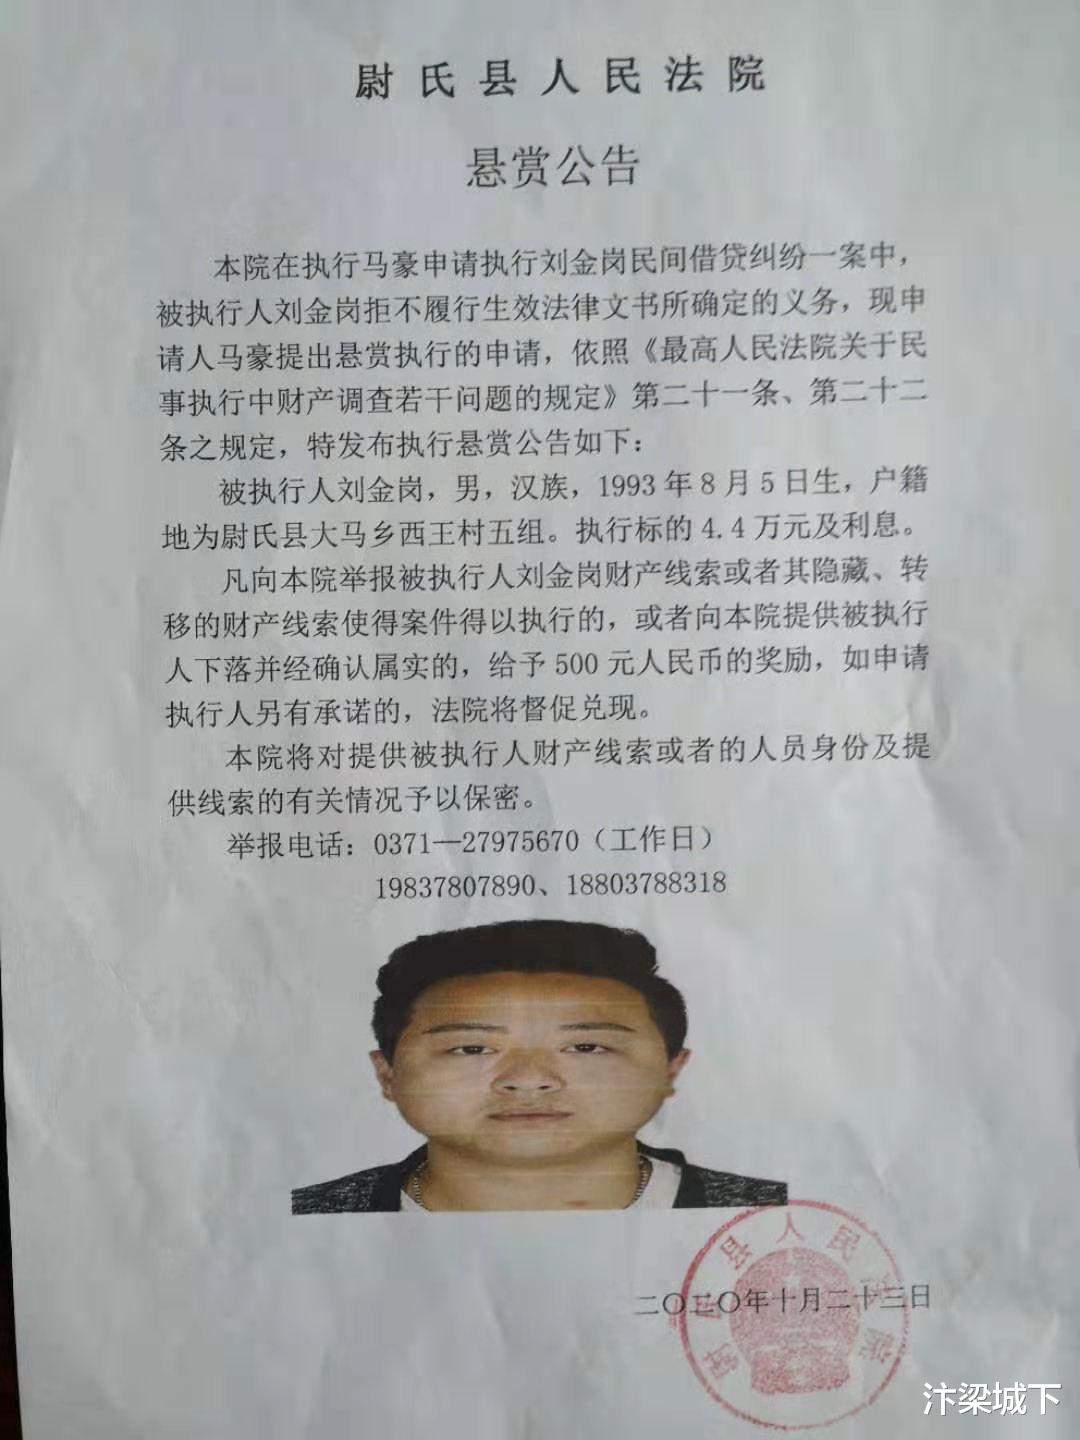 尉氏县人民法院
悬赏公告
本院在执行马豪申请执行刘金岗民间借贷纠纷一案中，
被执行人刘金岗拒不履行生效法律文书所确定的义务，现申
请人马豪提出悬赏执行的申请，依照《最高人民法院关于民
事执行中财产调查若干问题的规定》第二十一条、第二十二
条之规定，特发布执行悬赏公告如下：
被执行人刘金岗，男，汉族，1993年8月5日生，户籍
地为尉氏县大马乡西王村五组。执行标的4.4万元及利息。
凡向本院举报被执行人刘金岗财产线索或者其隐藏、转
移的财产线索使得案件得以执行的，或者向本院提供被执行
人下落并经确认属实的，给予500元人民币的奖励，如申请
执行人另有承诺的，法院将督促兑现。
本院将对提供被执行人财产线索或者的人员身份及提
供线索的有关情况予以保密。
举报电话：0371—27975670（工作日）
19837807890、18803788318
尉氏县人民法院
二〇二〇年十月二十三日
汴梁城下